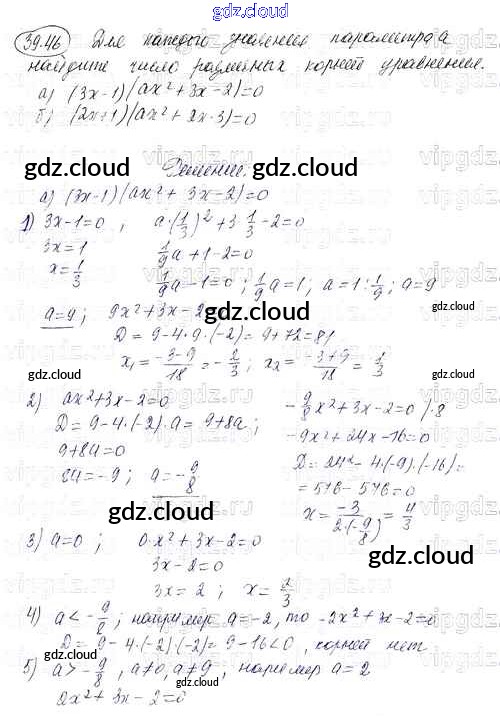 gdz.cloud
39.46 Для каждого значения параметра a
найдите число различных корней уравнения.
а) (3x-1)(ax²+3x-2)=0
б) (2x+1)(ax²+2x-3)=0
gdz.cloud gdz.cloud
Решение.
а) (3x-1)(ax²+3x-2)=0
1) 3x-1=0 ; a·(1/3)²+3·1/3-2=0
3x=1 1/9a+1-2=0
x=1/3 1/9a-1=0 ; 1/9a=1; a=1:1/9; a=9
a=9; 9x²+3x-2
gdz.cloud gdz.cloud
D=9-4·9·(-2)=9+72=81
x₁=(-3-9)/18=-2/3; x₂=(-3+9)/18=1/3
gdz.cloud gdz.cloud
2) ax²+3x-2=0
D=9-4·(-2)·a=9+8a;
9+8a=0
8a=-9; a=-9/8
-9/8x²+3x-2=0 /·8
-9x²+24x-16=0
D=24²-4·(-9)·(-16)=
=576-576=0
x=-3/(2·(-9/8))=4/3
gdz.cloud
3) a=0 ; 0·x²+3x-2=0
3x-2=0
3x=2 ; x=2/3
gdz.cloud gdz.cloud
4) a<-9/8; например a=-2, то -2x²+3x-2=0
D=9-4·(-2)·(-2)=9-16<0, корней нет
5) a>-9/8, a≠0, a≠9, например a=2
2x²+3x-2=0
gdz.cloud gdz.cloud